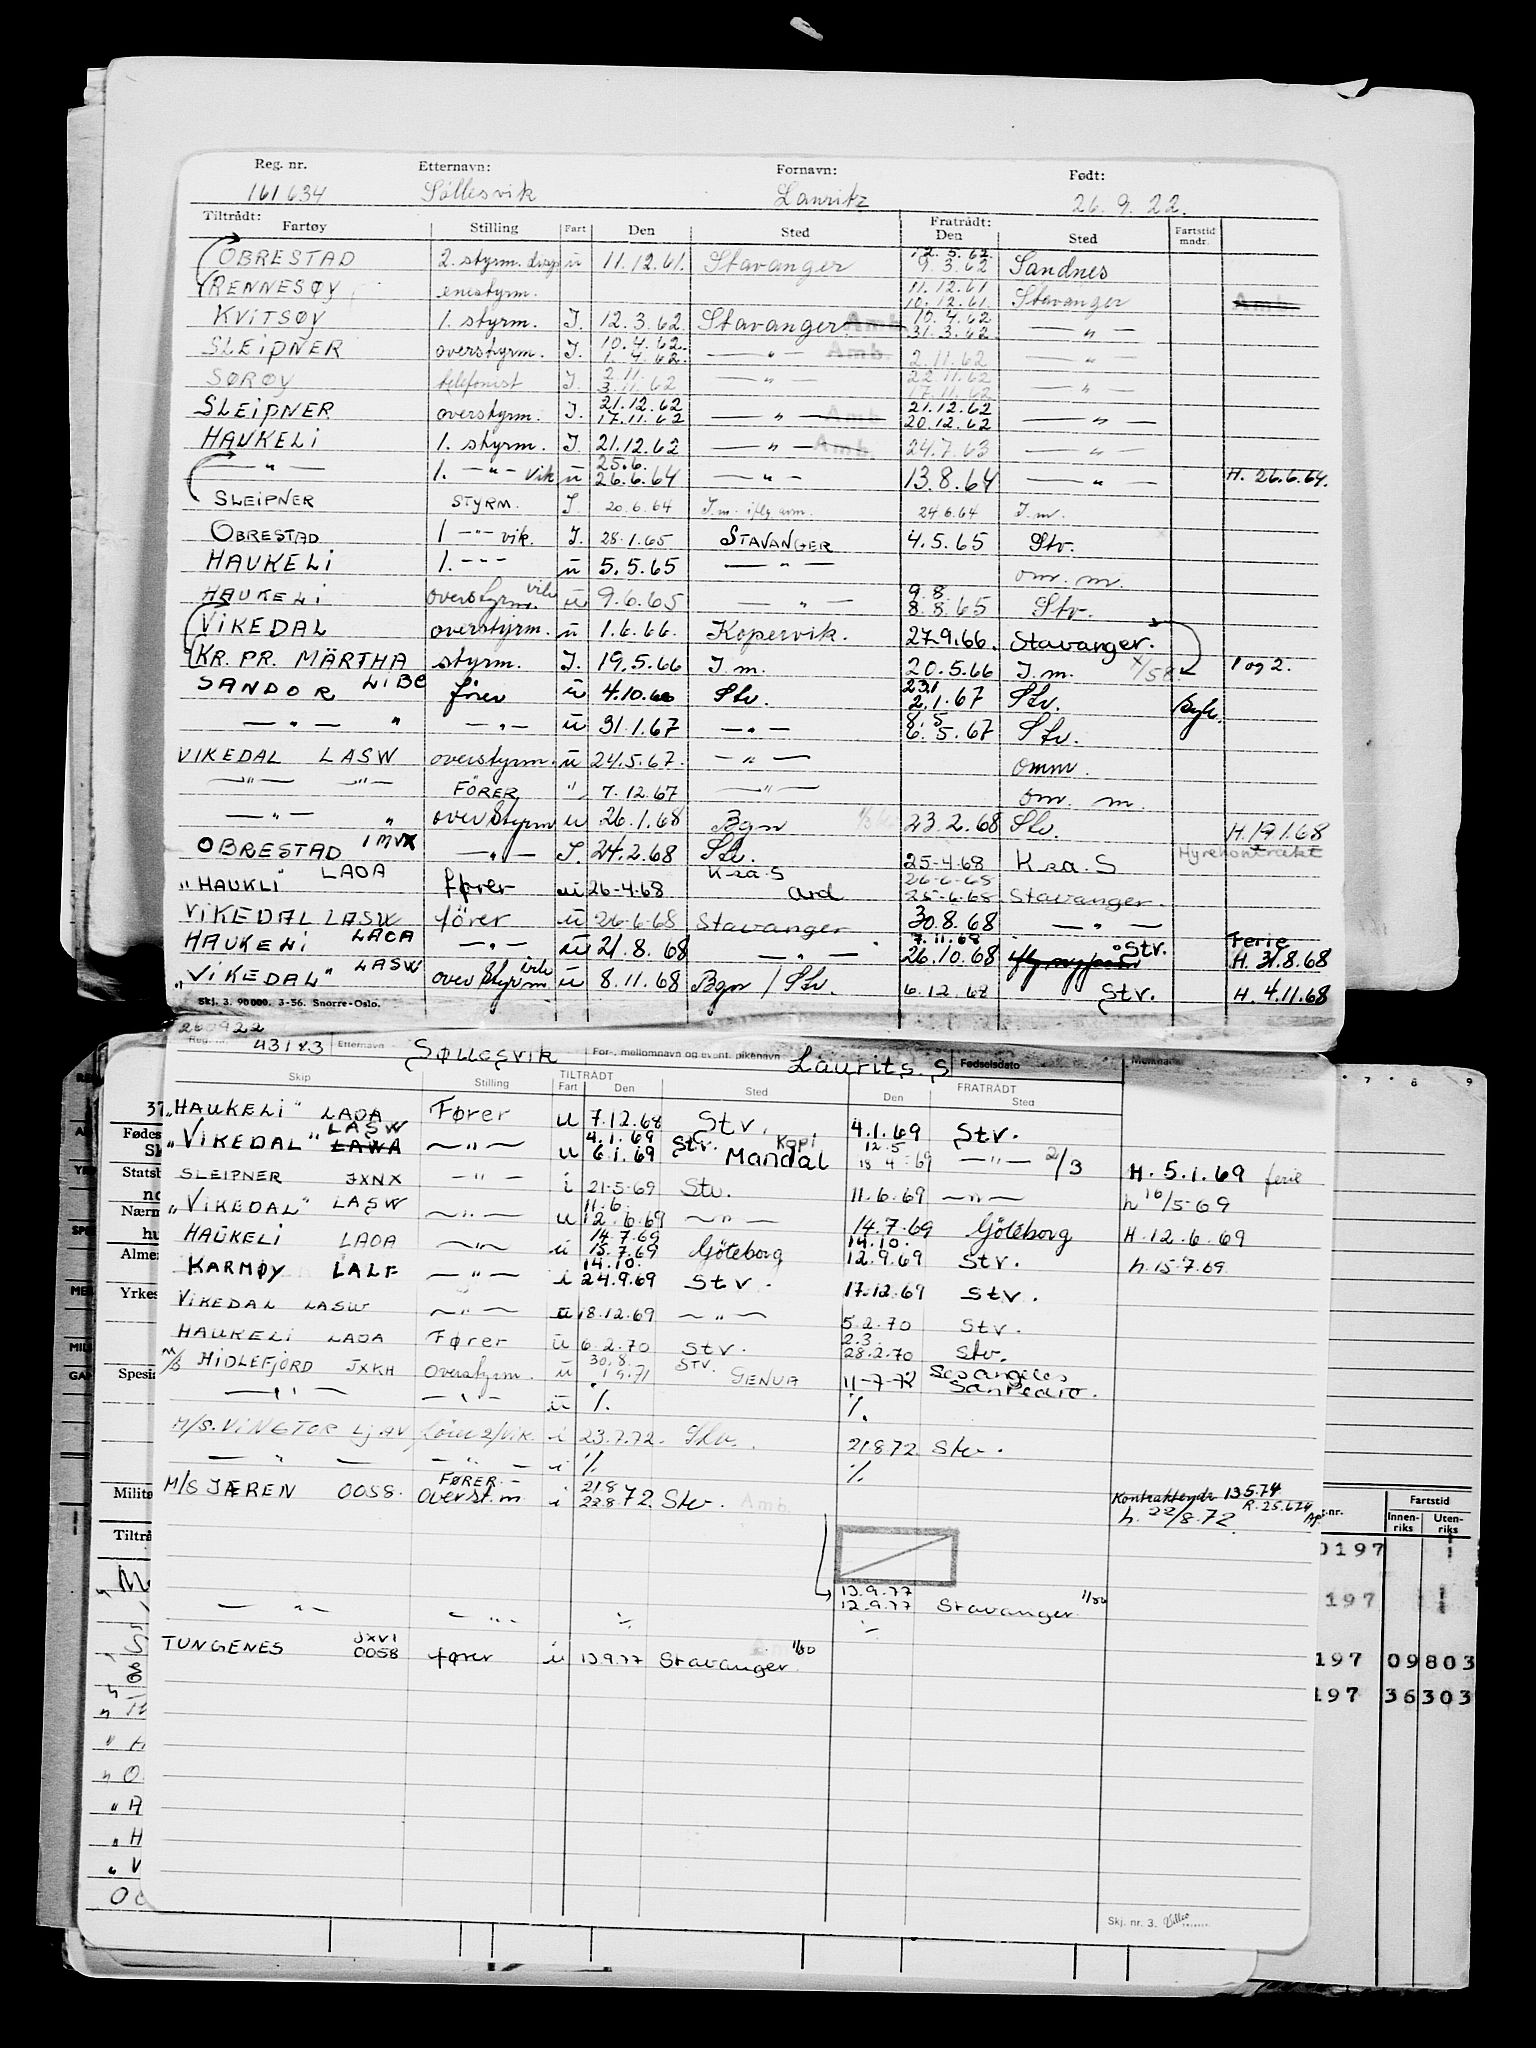 Reg. nr. Etternavn: Fornavn: Født:
161634 Søllesvik Lauritz 26.9.22.
Tiltrådt: Fratrådt:
Fartøy Stilling Fart Den Sted Den Sted Fartstid mndr.
OBRESTAD 2. styrm. disp ü 11.12.61. Stavanger 12.5.62. 9.3.62 Sandnes
RENNESØY enestyrm. 11.12.61 10.12.61. Stavanger Amb.
KVITSØY 1. styrm. I. 12.3.62. Stavanger Amb. 10.4.62 31.3.62 — " —
SLEIPNER overstyrm. I. 10.4.62. 1.4.62. — " — Amb. 2.11.62 — " —
SØRØY telefonist I. 2.11. 3.11.62 — " — 22.11.62 17.11.62 — " —
SLEIPNER overstyrm. I. 21.12.62 17.11.62 — " — Amb. 21.12.62 20.12.62 — " —
HAUKELI 1. styrm. I. 21.12.62 — " — Amb. 24.7.63 — " —
— " — 1. — " — vik ü 25.6. 26.6.64 — " — 13.8.64 — " — H. 26.6.64.
SLEIPNER STYRM. I. 20.6.64 I.m. iflg avm. 24.6.64 I.m.
OBRESTAD 1 — " — vik. I. 28.1.65 STAVANGER 4.5.65 Stv.
HAUKELI 1. - " - ü 5.5.65 — " — om. m.
HAUKELI overstyrm. vik ü 9.6.65 — " — 9.8. 8.8.65 Stv.
VIKEDAL overstyrm. ü 1.6.66. Kopervik. 27.9.66. Stavanger.
KR. PR. MÄRTHA styrm. I. 19.5.66 I.m. 20.5.66 I.m. x/58 1 og 2.
SANDOR LIBC fører ü 4.10.66 Stv. 23.1 2.1.67 Stv. Syk.
— " — " — " — ü 31.1.67 — " — 8.5 6.5.67 Stv.
VIKEDAL LASW overstyrm. ü 24.5.67. — " — omm.
— " — — " — FÖRER " 7.12.67 — " — om. m.
— " — " overstyrm ü 26.1.68 Bgn 23.2.68 Stv. H. 17.1.68
OBRESTAD IMVX — " — I. 24.2.68 Stv. 25-4.68 K.sa.S Hyrekontrakt
"HAUKLI" LAOA fører ü 26-4.68 K.sa.S Ard 26-6-68 25-6.68 Stavanger.
VIKEDAL LASW fører ü 26.6.68 Stavanger 30.8.68 — " —
HAUKELI LAOA — " — ü 21.8.68 — " — 7.11.68 26.10.68 Stv. Ferie H. 31.8.68
"VIKEDAL" LASW overstyrm vik ü 8.11.68 Bgn / Stv. 6.12.68 Stv. H. 4.11.68
Skj. 3. 90000. 3-56. Snorre-Oslo.
260922
Reg. nr. 43123 Etternavn SØLLESVIK For-, mellomnavn og event. pikenavn Laurits. S Fødselsdato Merknader
TILTRÅDT FRATRÅDT
Skip Stilling Fart Den Sted Den Sted
"HAUKELI" LAOA Fører u 7.12.68 Stv. 4.1.69 Stv.
"VIKEDAL" LASW LAWA — " — u 4.1.69 6.1.69 Stv. Kopi Mandal 12.5 18.4.69 — " — 2/3 H. 5.1.69 ferie
SLEIPNER JXNX — " — i 21-5-69 Stv. 11.6.69 — " — h 16/5-69
"VIKEDAL" LASW — " — u 11.6. 12.6.69 — " — 14.7.69 Göteborg H. 12.6.69
HAUKELI LAOA — " — ü 14.7.69 15.7.69 Göteborg 14.10. 12.9.69 Stv. h. 15.7.69
KARMØY LALF — " — i 14.10. 24.9.69 Stv. 17.12.69 Stv.
VIKEDAL LASW — " — u 18.12.69 — " — 5.2.70 Stv.
HAUKELI LAOA Fører ü 6.2.70 Stv. 2.3. 28.2.70 Stv.
M/S HIDLEFJORD JXKH Overstyrm. ü 30.8. 1.9.71 STV. GENUA 11-7-72 Los Angeles San Pedro.
— " — — " — ü ٪. ٪.
M/S. VINGTOR LJAV fører 2/vik. i 23.7.72. Stv. 21.8.72. Stv.
— " — — " — i ٪ ٪
M/S JÆREN 0058. FØRER. Overst.m i 21.8 22.8.72. Stv. Amb. Kontraktendr 13.5.74 R. 25.6.74 h. 22/8.72.
13.9.77
— " — — " — ٪ 12.9.77 Stavanger 1/80
TUNGENES JXVI 0058 fører i 13.9.77 Stavanger 1/80
Skj. nr. 3.
7 8 9
Fødes
Statsb
Nærm
Alme
Yrkes
Spesi
Milit
Tiltrå
Fartstid
Innen-riks Uten-riks
0197
197
197 09803
197 36303